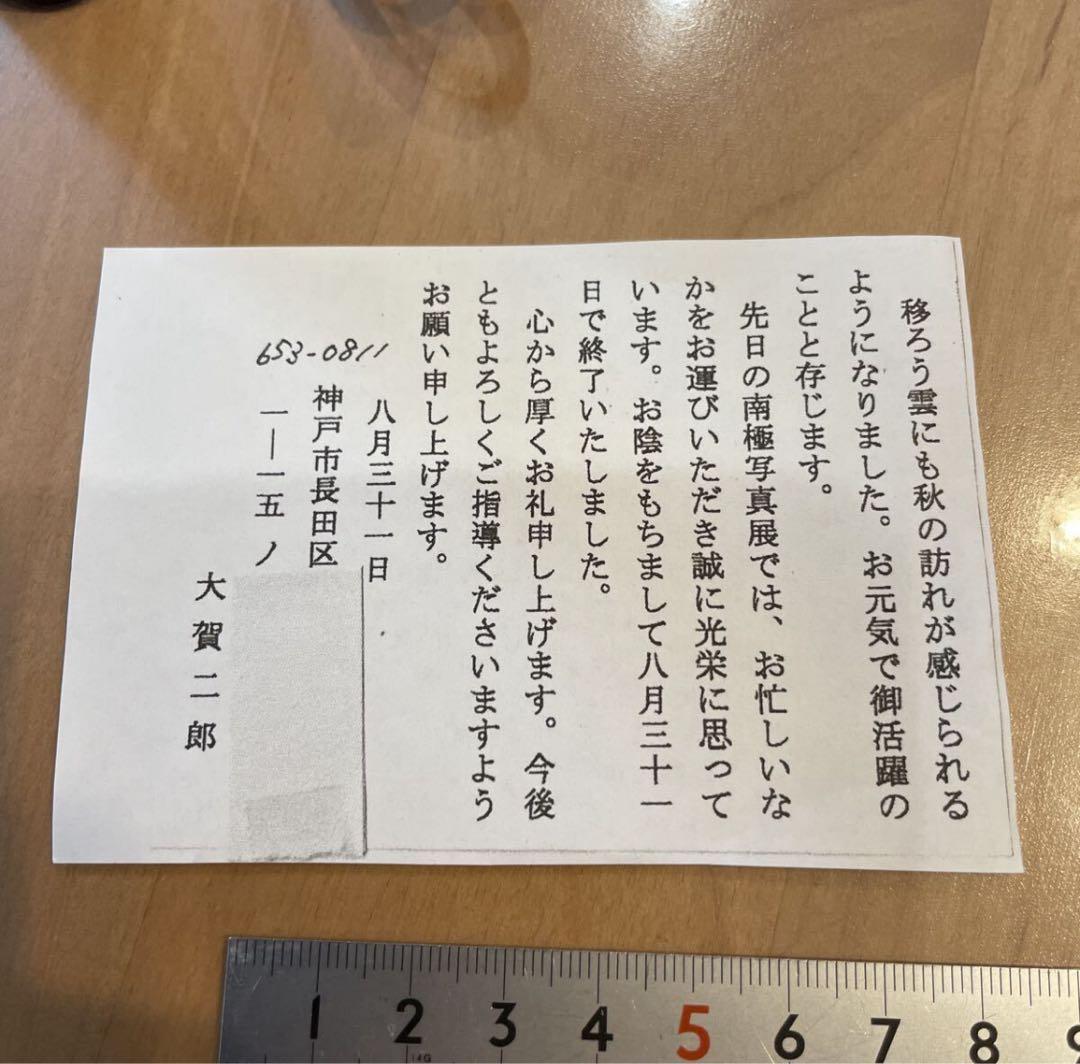 移ろう雲にも秋の訪れが感じられる
ようになりました。お元気で御活躍の
ことと存じます。
先日の南極写真展では、お忙しいな
かをお運びいただき誠に光栄に思って
います。お陰をもちまして八月三十一
日で終了いたしました。
心から厚くお礼申し上げます。今後
ともよろしくご指導くださいますよう
お願い申し上げます。
八月三十一日
653-0811
神戸市長田区
一―一五ノ
大賀二郎
1 2 3 4 5 6 7 8